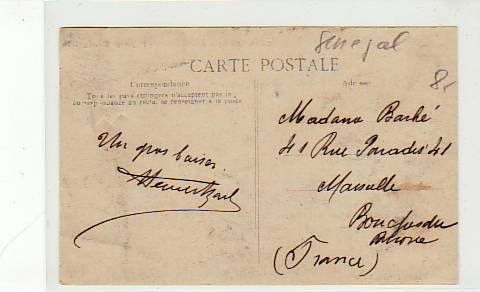 Senegal
8-
CARTE POSTALE
Correspondance
Tous les pays étrangers n'acceptent pas la
correspondance au recto, se renseigner à la poste
Adresse
Un gros baiser
Madame Barbé
41 Rue Paradis 41
Marseille
Bouches du
Rhône
(France)